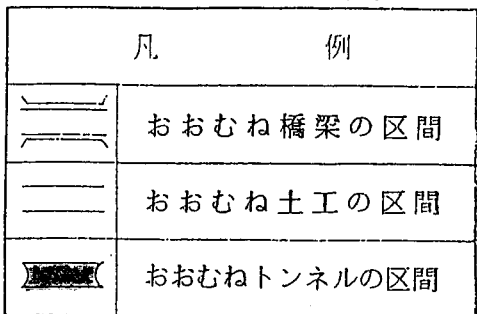 凡例
おおむね橋梁の区間
おおむね土工の区間
おおむねトンネルの区間